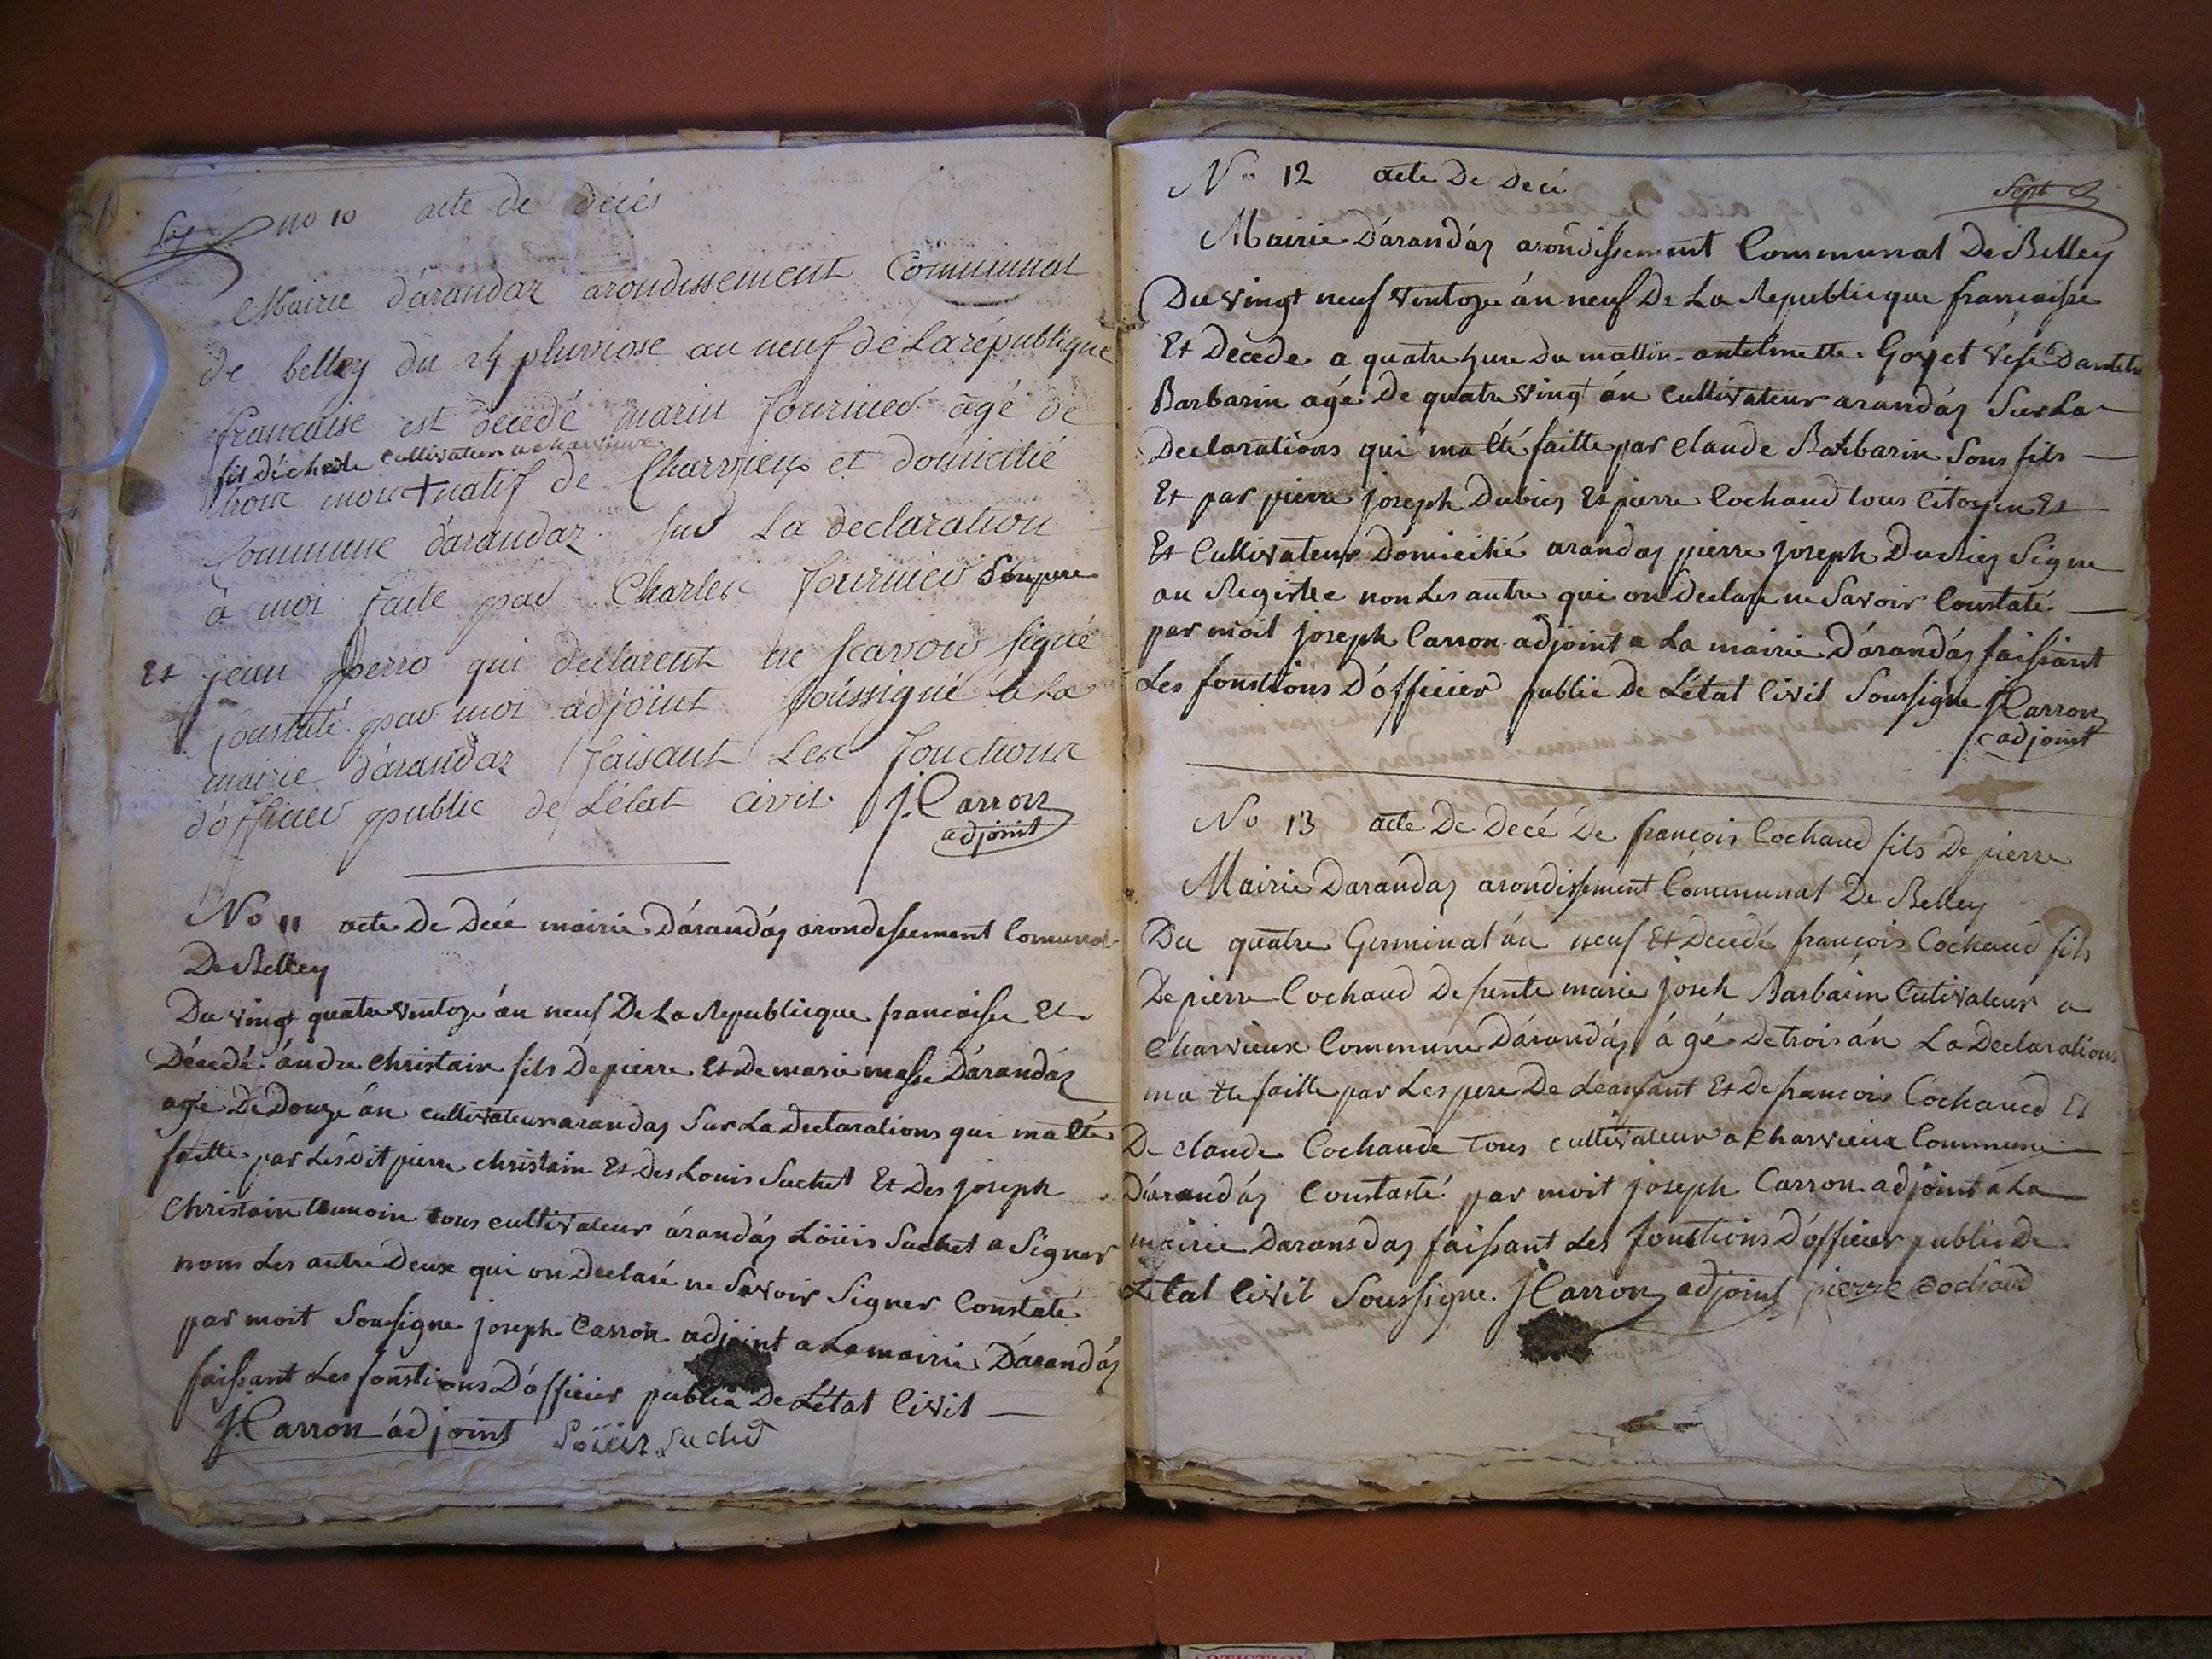 no 10 acte de décés
Mairie d'arandaz arondissement Communal
de belley du 24 pluviose an neuf de La république
francaise est decedé marin fournier agé de
fils de charle cultivateur a charvieux
trois mois + natif de Charvieux et domicilié
Commune d'arandaz sur La declaration
à moi faite par Charles fournier Son pere
Et jean perro qui declarent ne scavoir signé
Constaté par moi adjoint soussigné a La
mairie d'arandaz faisant Les fonctions
d'officier public de L'état civil. J. Carron
adjoint
No 11 acte De Decé mairie D'arandáz arondissement Comunal
De Belley
Du vingt quatre ventoze án neuf De La Republicque francaisse Et
Décedé ándre christain fils De pierre Et De marie masse D'arandáz
agé De Douze án cultivateur arandaz Sur La Declarations qui ma été
faitte par Les Dit pierre christain Et Des Louis Suchet Et Des joseph
Christain temoin tous cultivateur árandáz Loüis Suchet a Signer
nom Les autre Deux qui on Declaré ne Savoir Signer Constaté
par moit Sousigne joseph Carron adjoint a La mairie D'arandáz
faissant Les fonstions D'officier public De L'état Civil —
J. Carron adjoint Loüis Suchet
No 12 acte De Decé
Sept
Mairie D'arandáz arondissement Communal De Belley
Du vingt neuf Ventoze án neuf De La Republicque francaisse
Et Decede a quatre hure du mattin antelmette Goyet
Barbarin agé De quatre vingt án cultivateur arandáz Sur La
Declarations qui ma été faitte par claude Barbarin Sons fils —
Et par pierre joseph Dubiez Et pierre Cochaud tous Citoyen Et
Et Cultivateur Domicilié arandaz pierre joseph Dubiez Signe
au Registre non Les autre qui on Declare ne Savoir Constaté —
par moit joseph Carron adjoint a La mairie D'arandáz faissant
Les fonstions D'officier public De L'état Civil Soussigne J Carron
adjoint
No 13 acte De Decé De françois Cochaud fils De pierre
Mairie Darandaz arondissement Communal De Belley
Du quatre Germinal án neuf Et Decedé françois Cochaud fils
De pierre Cochaud De funte marie joseh Barbarin Cutivateur a
Charvieux Commune D'arandáz ágé De trois án La Declarations
ma ete faitte par Les pere De Leanfant Et De francois Cochaud Et
De claude Cochaude tous cultivateur a Charvieux Commune
D'arandáz Constasté par moit joseph Carron adjoint a La
mairie Daransdaz faissant Les fonstions D'officier public De
L'état Civil Soussigne. J Carron adjoint pierre cochaud